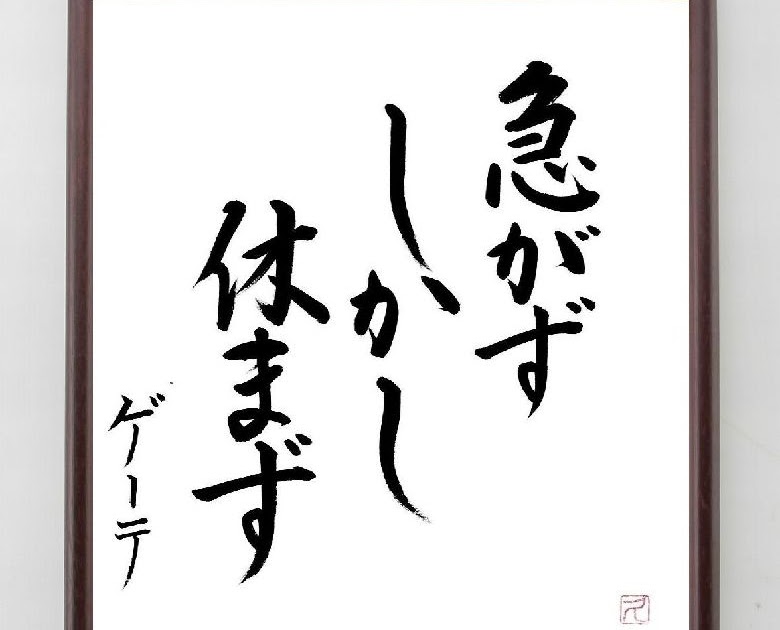 急がず
しかし
休まず
ゲーテ